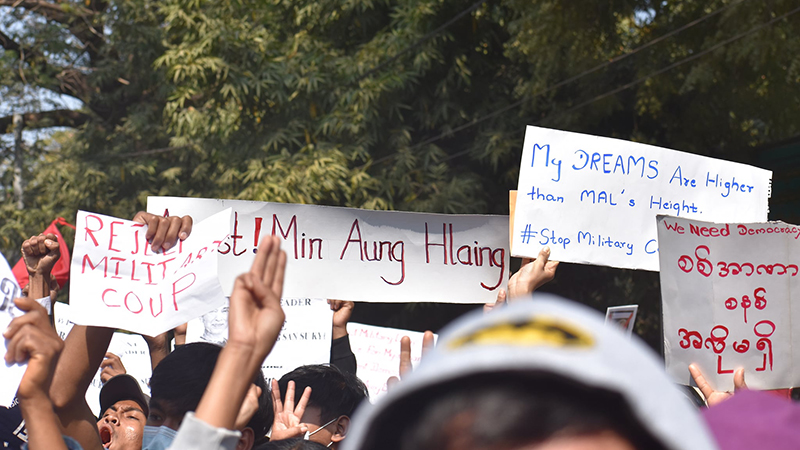 REJE
MILITARY
COUP
st! Min Aung Hlaing
My DREAMS Are Higher
than MAL's Height.
#Stop Military C
We Need Democracy
စစ်အာဏာ
စနစ်
အလိုမရှိ
EADER
SAN SU KYI